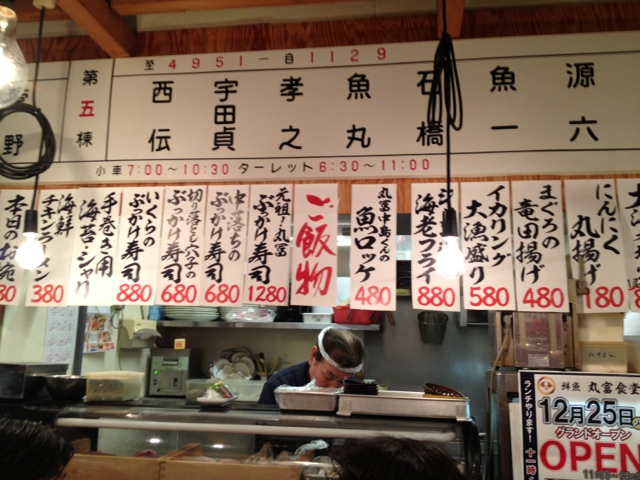 至 4951 一 目 1129
第五棟
野
西伝
宇田貞
孝之
魚丸
石橋
魚一
源六
小車 7:00〜10:30 ターレット 6:30〜11:00
にんにく
丸揚げ
180
まぐろの
竜田揚げ
480
イカリング
大漁盛り
580
海老フライ
880
丸富中島くんの
魚ロッケ
480
ご飯物
元祖!丸富
ぶっかけ寿司
1280
中落ちの
ぶっかけ寿司
680
ぶっかけ寿司
680
いくらの
ぶっかけ寿司
880
手巻き用
海苔・シャリ
海鮮
チキンラーメン
380
本日の
80
鮮魚 丸富食堂
12月25日
グランドオープン
OPEN
ランチやります!